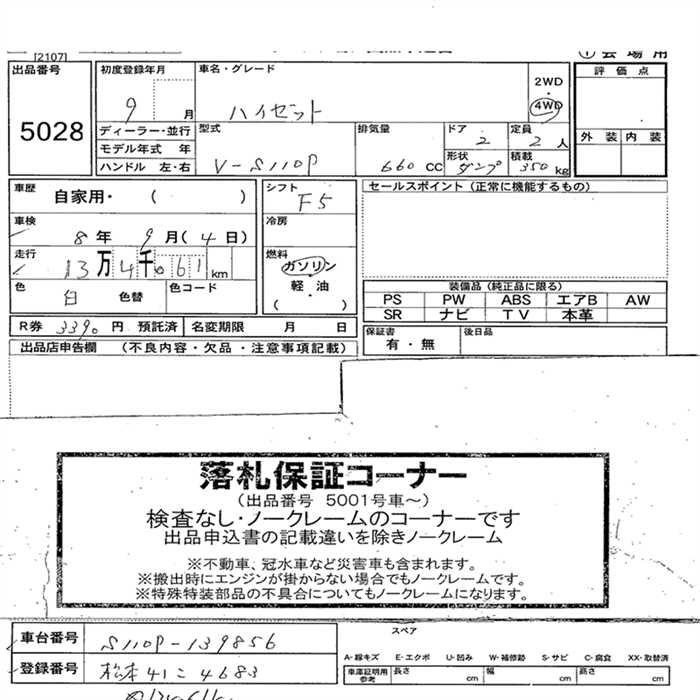 [2107]
① 会 場 用
出品番号
5028
初度登録年月
9 月
ディーラー・並行
モデル年式 年
ハンドル 左・右
車名・グレード
ハイゼット
2WD
4WD
型式
V-S110P
排気量
660 CC
ドア
2
定員
2 人
形状
ダンプ
積載
350 kg
評 価 点
外 装 内 装
車歴
自家用・( )
車検
8 年 9 月 ( 4 日)
走行
13 万 4 千 061 km
色
白 色替
色コード
シフト
F5
冷房
燃料
ガソリン
・
軽・油
( )
セールスポイント (正常に機能するもの)
装備品 (純正品に限る)
PS PW ABS エアB AW
SR ナビ TV 本革
R券 3390 円 預託済 名変期限 月 日
保証書
有・無
後日品
出品店申告欄 (不良内容・欠品・注意事項記載)
落札保証コーナー
(出品番号 5001号車～)
検査なし・ノークレームのコーナーです
出品申込書の記載違いを除きノークレーム
※不動車、冠水車など災害車も含まれます。
※搬出時にエンジンが掛からない場合でもノークレームです。
※特殊特装部品の不具合についてもノークレームになります。
車台番号 S110P-139856
登録番号 松本41こ4683
スペア
A-線キズ E-エクボ U-凹み W-補修跡 S-サビ C-腐食 XX-取替済
車庫証明用
参考
長さ cm 幅 cm 高さ cm